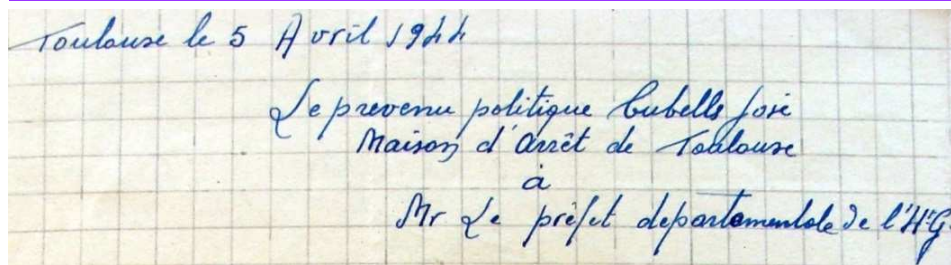 Toulouse le 5 Avril 1944
Le prevenu politique Cubells José
Maison d'Arrêt de Toulouse
à
Mr Le préfet departementale de l'H-G.